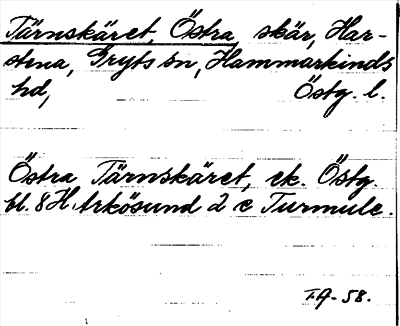 Tärnskäret, Östra, skär, Har-
stena, Gryts sn, Hammarkinds
hd, Östg. l.
Östra Tärnskäret, ek. Östg.
bl. 8 H. Arkösund 2 c Turmule.
T.A. 58.